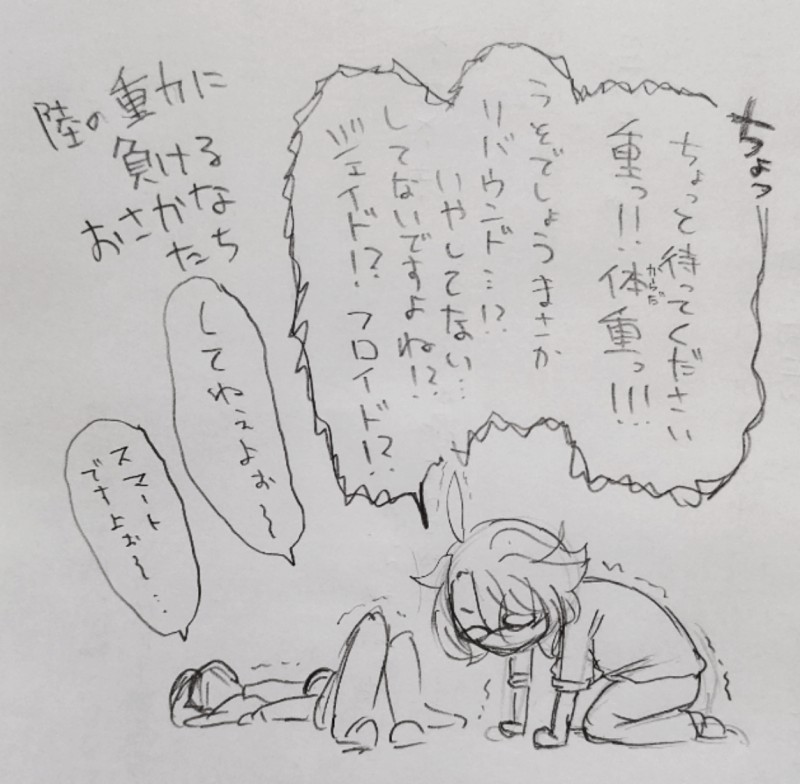 陸の重力に
負ける
おさかな
たち
ちょっ
ちょっと待ってください
重っ!!体重っ!!!
からだ
うそでしょうまさか
リバウンド…!?
いやしてない…
してないですよね!?
ジェイド!?フロイド!?
してねえよぉ〜
スマート
ですよぉ〜…